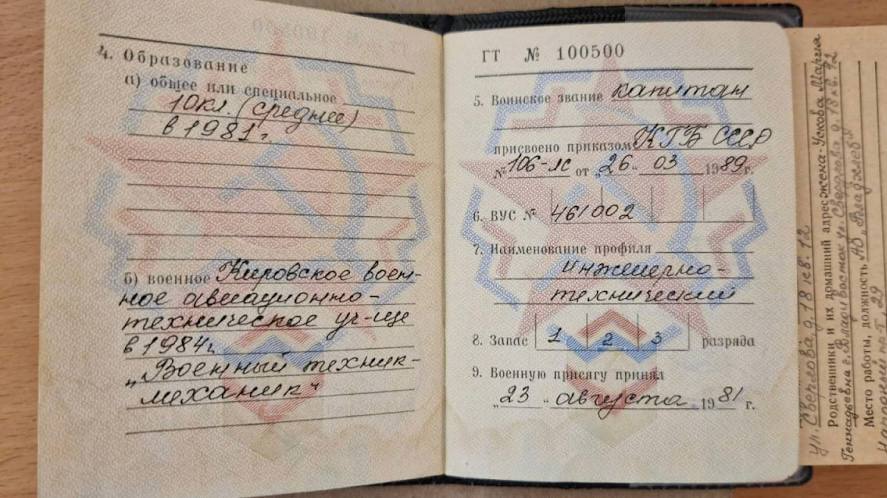 4. Образование
а) общее или специальное
10 кл. (среднее)
в 1981 г.
б) военное Кировское воен-
ное авиационно-
техническое уч-ще
в 1984 г.
„Военный техник-
механик“
ГТ № 100500
5. Воинское звание капитан
присвоено приказом КГБ СССР
№ 106-лс от „26“ 03 1989 г.
6. ВУС № 461002
7. Наименование профиля
инженерно-
технический
8. Запас 1 2 3 разряда
9. Военную присягу принял
„23“ августа 1981 г.
ул. Сверлова д. 18 кв. 12
Родственники и их домашний адрес жена-Ускова Мария
Геннадьевна г. Владивосток ул. Свердлова д. 18 кв. 12
Место работы, должность АО
29